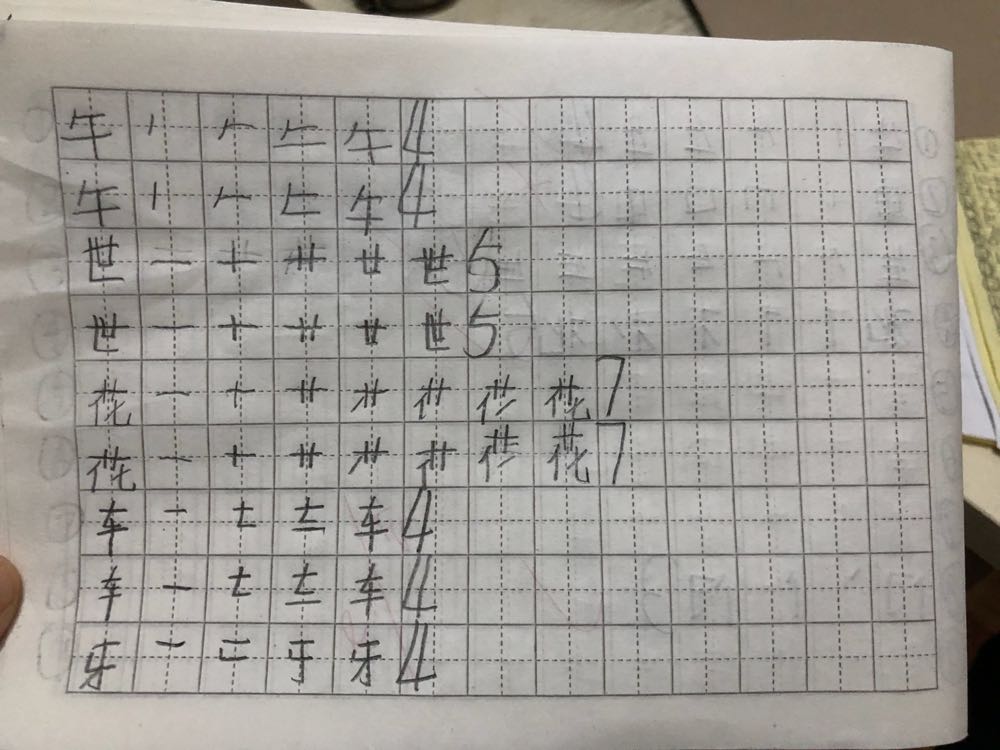 午 丿 𠂉 𠂉一 午 4
午 丿 𠂉 𠂉一 午 4
世 一 十 卄 廿 世 5
世 一 十 卄 廿 世 5
花 一 十 艹 花 7
花 一 十 艹 花 7
车 一 车 4
车 一 车 4
牙 一 二 牙 4